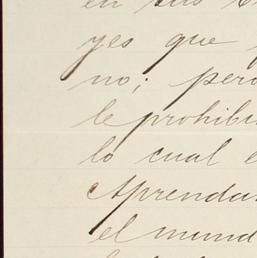 en sus
yes que
no; pero
le prohib
lo cual e
Aprenda
el mund